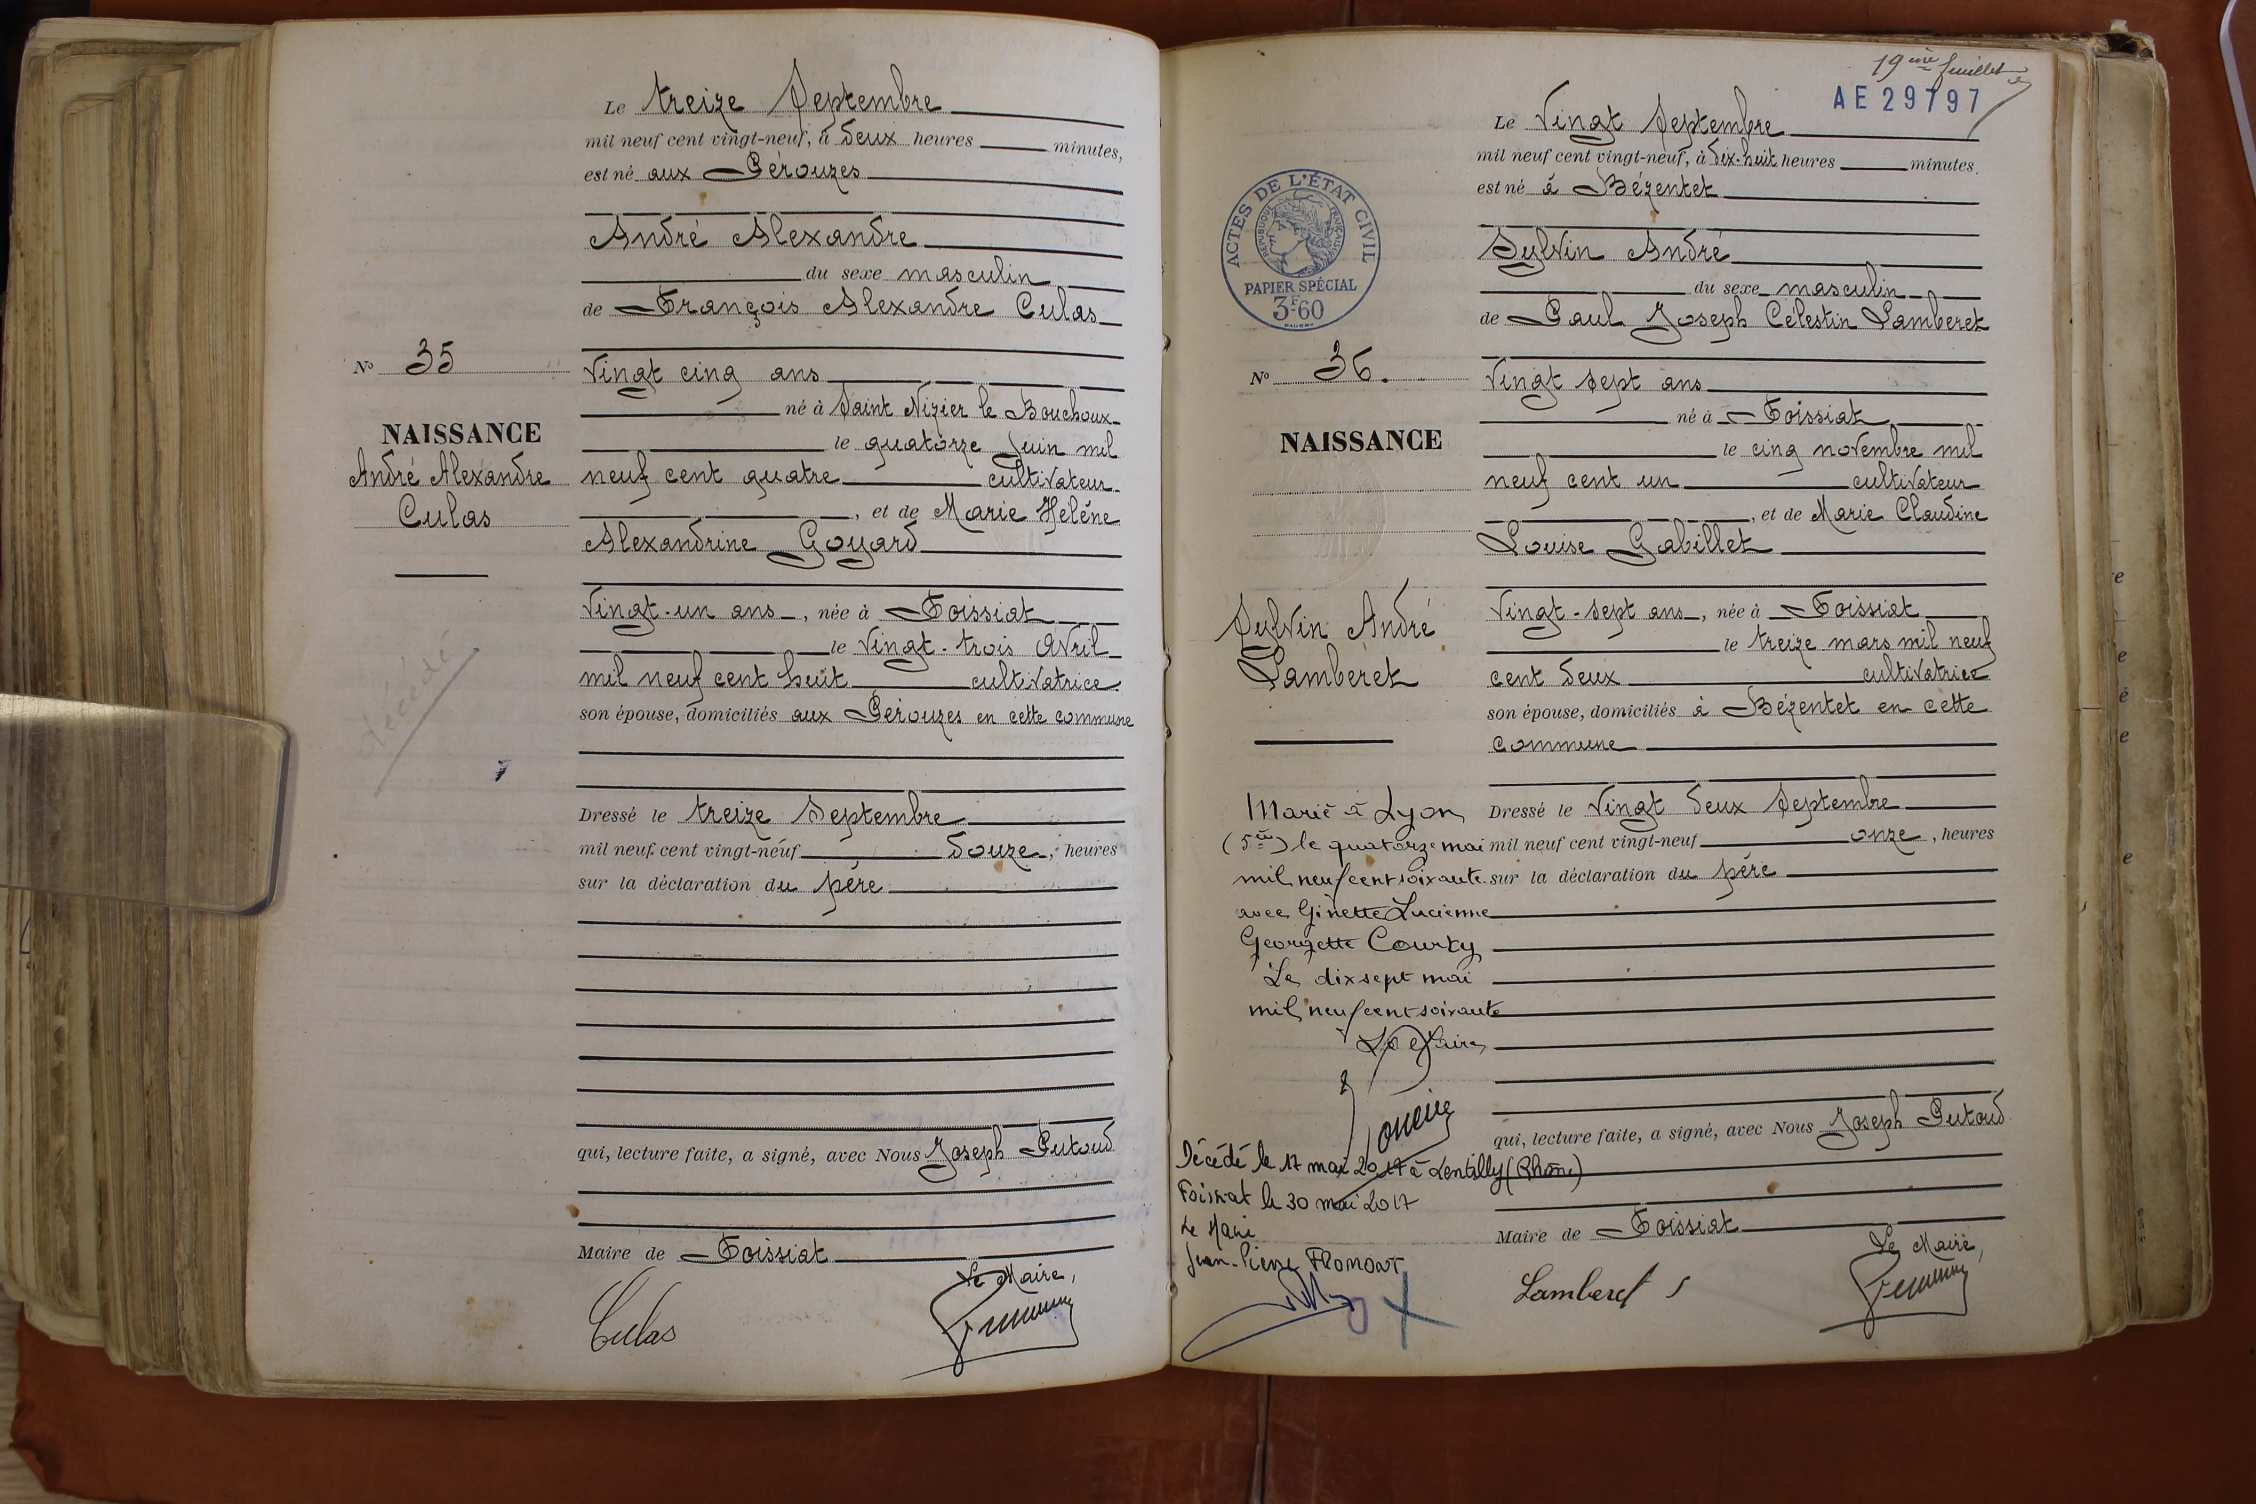 Le treize Septembre
mil neuf cent vingt-neuf, à deux heures minutes,
est né aux Pérouzes
André Alexandre
du sexe masculin
de François Alexandre Culas
No 35
Vingt cinq ans
né à Saint Nizier le Bouchoux
NAISSANCE
le quatorze Juin mil
André Alexandre
neuf cent quatre cultivateur
Culas
, et de Marie Hélène
Alexandrine Goyard
Vingt-un ans, née à Foissiat
le Vingt-trois Avril
mil neuf cent huit cultivatrice
son épouse, domiciliés aux Pérouzes en cette commune
décédé
Dressé le treize Septembre
mil neuf cent vingt-neuf douze, heures
sur la déclaration du père
qui, lecture faite, a signé, avec Nous Joseph Putoud
Maire de Foissiat
Le Maire,
Culas
19ème feuillet
AE29797
Le Vingt Septembre
mil neuf cent vingt-neuf, à dix-huit heures minutes.
est né à Bézentet
ACTES DE L'ÉTAT CIVIL
RÉPUBLIQUE FRANÇAISE
PAPIER SPÉCIAL
3F60
Sylvin André
du sexe masculin
de Paul Joseph Célestin Lamberet
No 36.
Vingt sept ans
né à Foissiat
NAISSANCE
le cinq novembre mil
neuf cent un cultivateur
, et de Marie Claudine
Louise Gabillet
Sylvin André
Lamberet
Vingt-sept ans, née à Foissiat
le treize mars mil neuf
cent deux cultivatrice
son épouse, domiciliés à Bézentet en cette
commune
Marié à Lyon
(5e) le quatorze mai
mil neuf cent soixante
avec Ginette Lucienne
Georgette Courty
Le dix sept mai
mil neuf cent soixante
Le Maire
Dressé le Vingt deux Septembre
mil neuf cent vingt-neuf onze, heures
sur la déclaration du père
qui, lecture faite, a signé, avec Nous Joseph Putoud
Décédé le 17 mai 2017 à Lentilly (Rhône)
Foissiat le 30 mai 2017
Le Maire
Jean-Pierre FROMONT
Maire de Foissiat
Le Maire,
Lamberet S